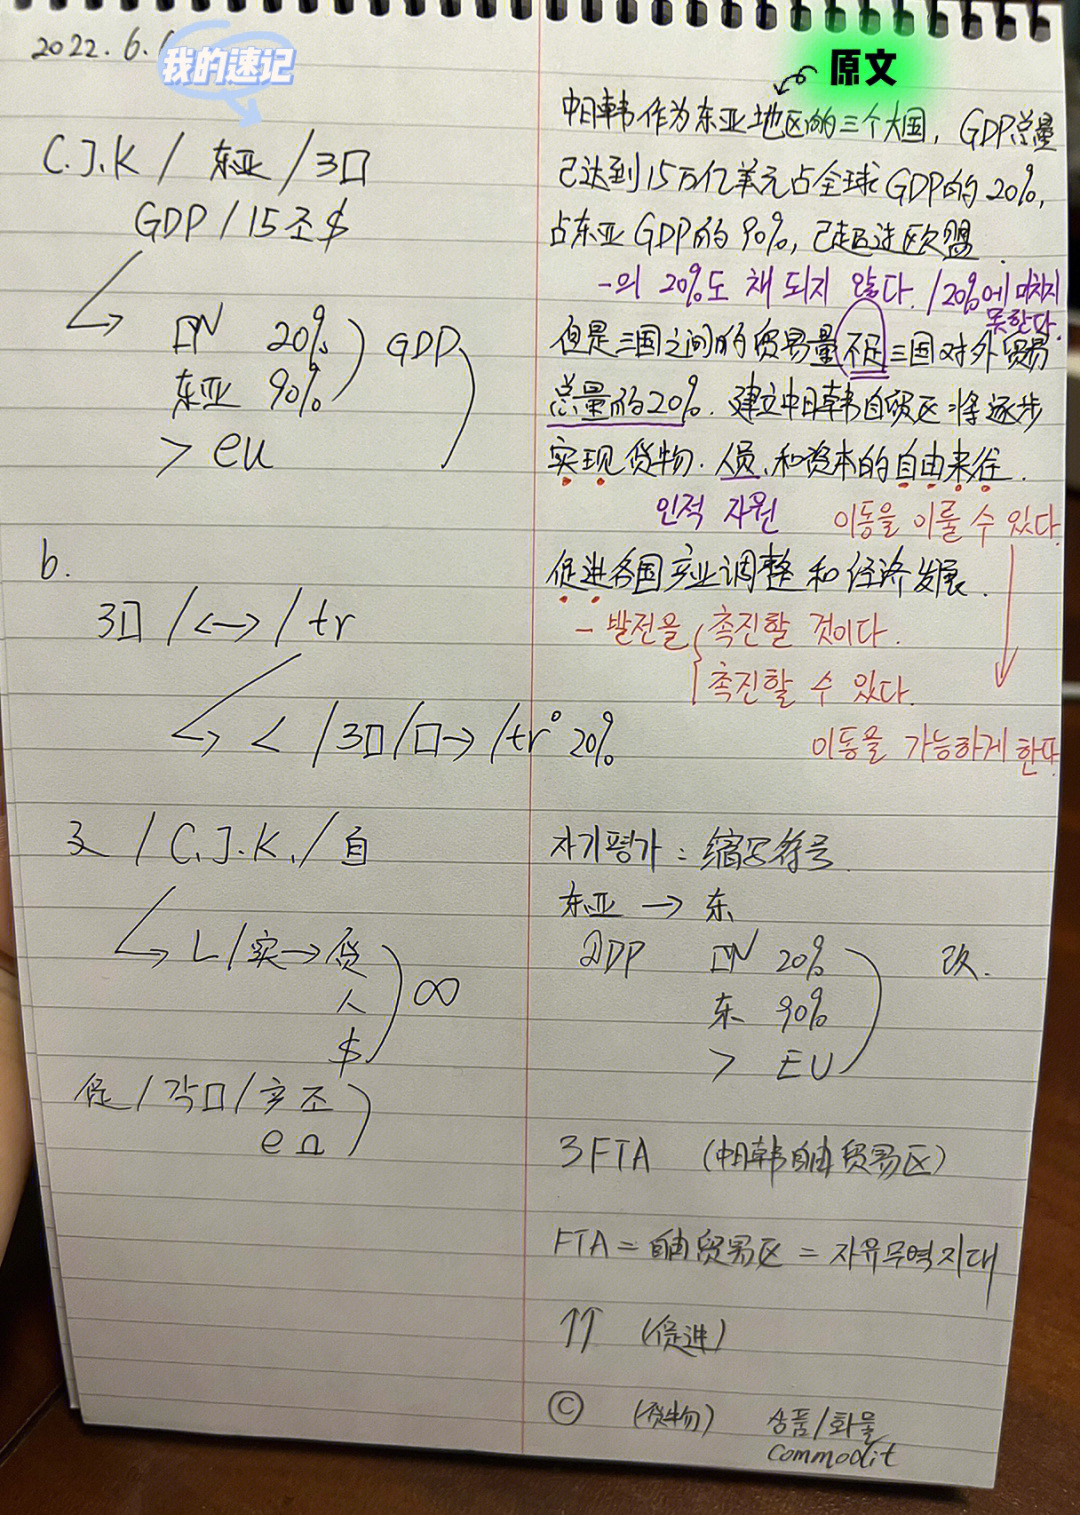 2022.6.
我的速记
C.J.K / 东亚 / 3口
GDP / 15兆$
20%
东亚 90%
GDP
> eu
b.
3口 / ↔ / tr
< / 3口 / 口→ / tr° 20%
/ C.J.K. / 自
L / 实→货
人
$
∞
促 / 各口 / 产调
e
原文
中日韩作为东亚地区的三个大国，GDP总量
已达到15万亿美元占全球GDP的20%，
占东亚GDP的90%，已超过欧盟.
-의 20%도 채 되지 않다. / 20%에 미치지
못한다.
但是三国之间的贸易量不足三国对外贸易
总量的20%. 建立中日韩自贸区将逐步
实现货物.人员、和资本的自由来往.
인적 자원 이동을 이룰 수 있다.
促进各国产业调整和经济发展.
- 발전을 촉진할 것이다.
촉진할 수 있다.
이동을 가능하게 한다
자기평가 : 缩写符号
东亚 → 东
GDP 20% 改.
东 90%
> EU
3FTA (中日韩自由贸易区)
FTA = 自由贸易区 = 자유무역지대
↑↑ (促进)
Ⓒ (货物) 상품/화물
commodit